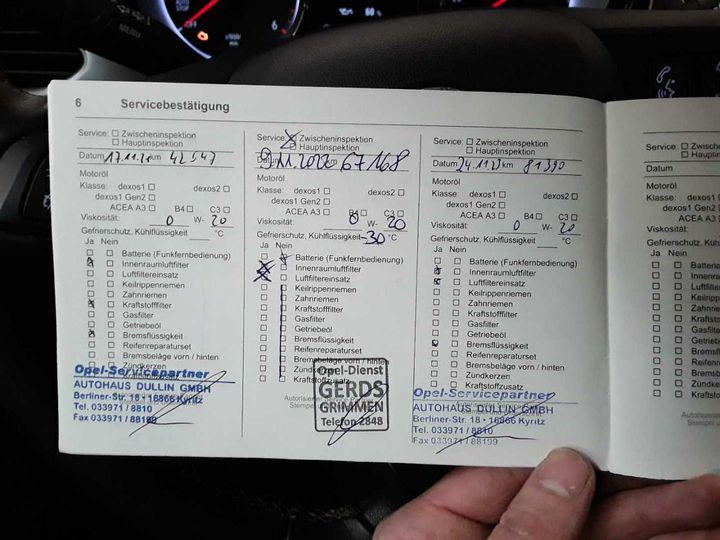 6 Servicebestätigung
Service: Zwischeninspektion
Hauptinspektion
Datum 17.11.21 km 42 547
Motoröl
Klasse: dexos1 dexos2
dexos1 Gen2
ACEA A3 B4 C3
Viskosität: 0 W- 20
Gefrierschutz, Kühlflüssigkeit °C
Ja Nein
Batterie (Funkfernbedienung)
Innenraumluftfilter
Luftfiltereinsatz
Keilrippenriemen
Zahnriemen
Kraftstofffilter
Gasfilter
Getriebeöl
Bremsflüssigkeit
Reifenreparaturset
Bremsbeläge vorn / hinten
Zündkerzen
Opel-Servicepartner
AUTOHAUS DULLIN GMBH
Berliner-Str. 18 • 16866 Kyritz
Tel. 033971 / 8810
Fax 033971 / 88199
Service: Zwischeninspektion
Hauptinspektion
Datum 11.2022 km 67168
Motoröl
Klasse: dexos1 dexos2
dexos1 Gen2
ACEA A3 B4 C3
Viskosität: 0 W- 20
Gefrierschutz, Kühlflüssigkeit -30 °C
Ja Nein
Batterie (Funkfernbedienung)
Innenraumluftfilter
Luftfiltereinsatz
Keilrippenriemen
Zahnriemen
Kraftstofffilter
Gasfilter
Getriebeöl
Bremsflüssigkeit
Reifenreparaturset
Bremsbeläge vorn / hinten
Zündkerzen
Kraftstoffzusatz
Opel-Dienst
GERDS
GRIMMEN
Telefon 2848
Service: Zwischeninspektion
Hauptinspektion
Datum 24.11.23 km 81390
Motoröl
Klasse: dexos1 dexos2
dexos1 Gen2
ACEA A3 B4 C3
Viskosität: 0 W- 20
Gefrierschutz, Kühlflüssigkeit °C
Ja Nein
Batterie (Funkfernbedienung)
Innenraumluftfilter
Luftfiltereinsatz
Keilrippenriemen
Zahnriemen
Kraftstofffilter
Gasfilter
Getriebeöl
Bremsflüssigkeit
Reifenreparaturset
Bremsbeläge vorn / hinten
Zündkerzen
Kraftstoffzusatz
Opel-Servicepartner
AUTOHAUS DULLIN GMBH
Berliner-Str. 18 • 16866 Kyritz
Tel. 033971 / 8810
Fax 033971 / 88199
Service:
Datum
Motoröl
Klasse: dexos1
dexos1 Gen2
ACEA A3
Viskosität:
Gefrierschutz, Kühl
Ja Nein
Batterie
Innenra
Luftfilte
Keilripp
Zahnrie
Kraftsto
Gasfilte
Getrieb
Bremsfl
Reifenr
Bremsb
Zündke
Kraftsto